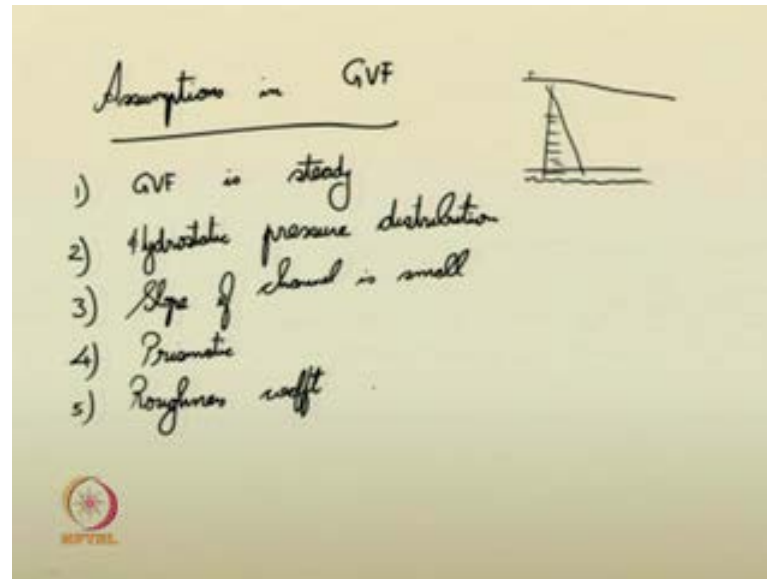 Assumptions in GVF
1) GVF is steady
2) Hydrostatic pressure distribution
3) Slope of channel is small
4) Prismatic
5) Roughness coefft
NPTEL